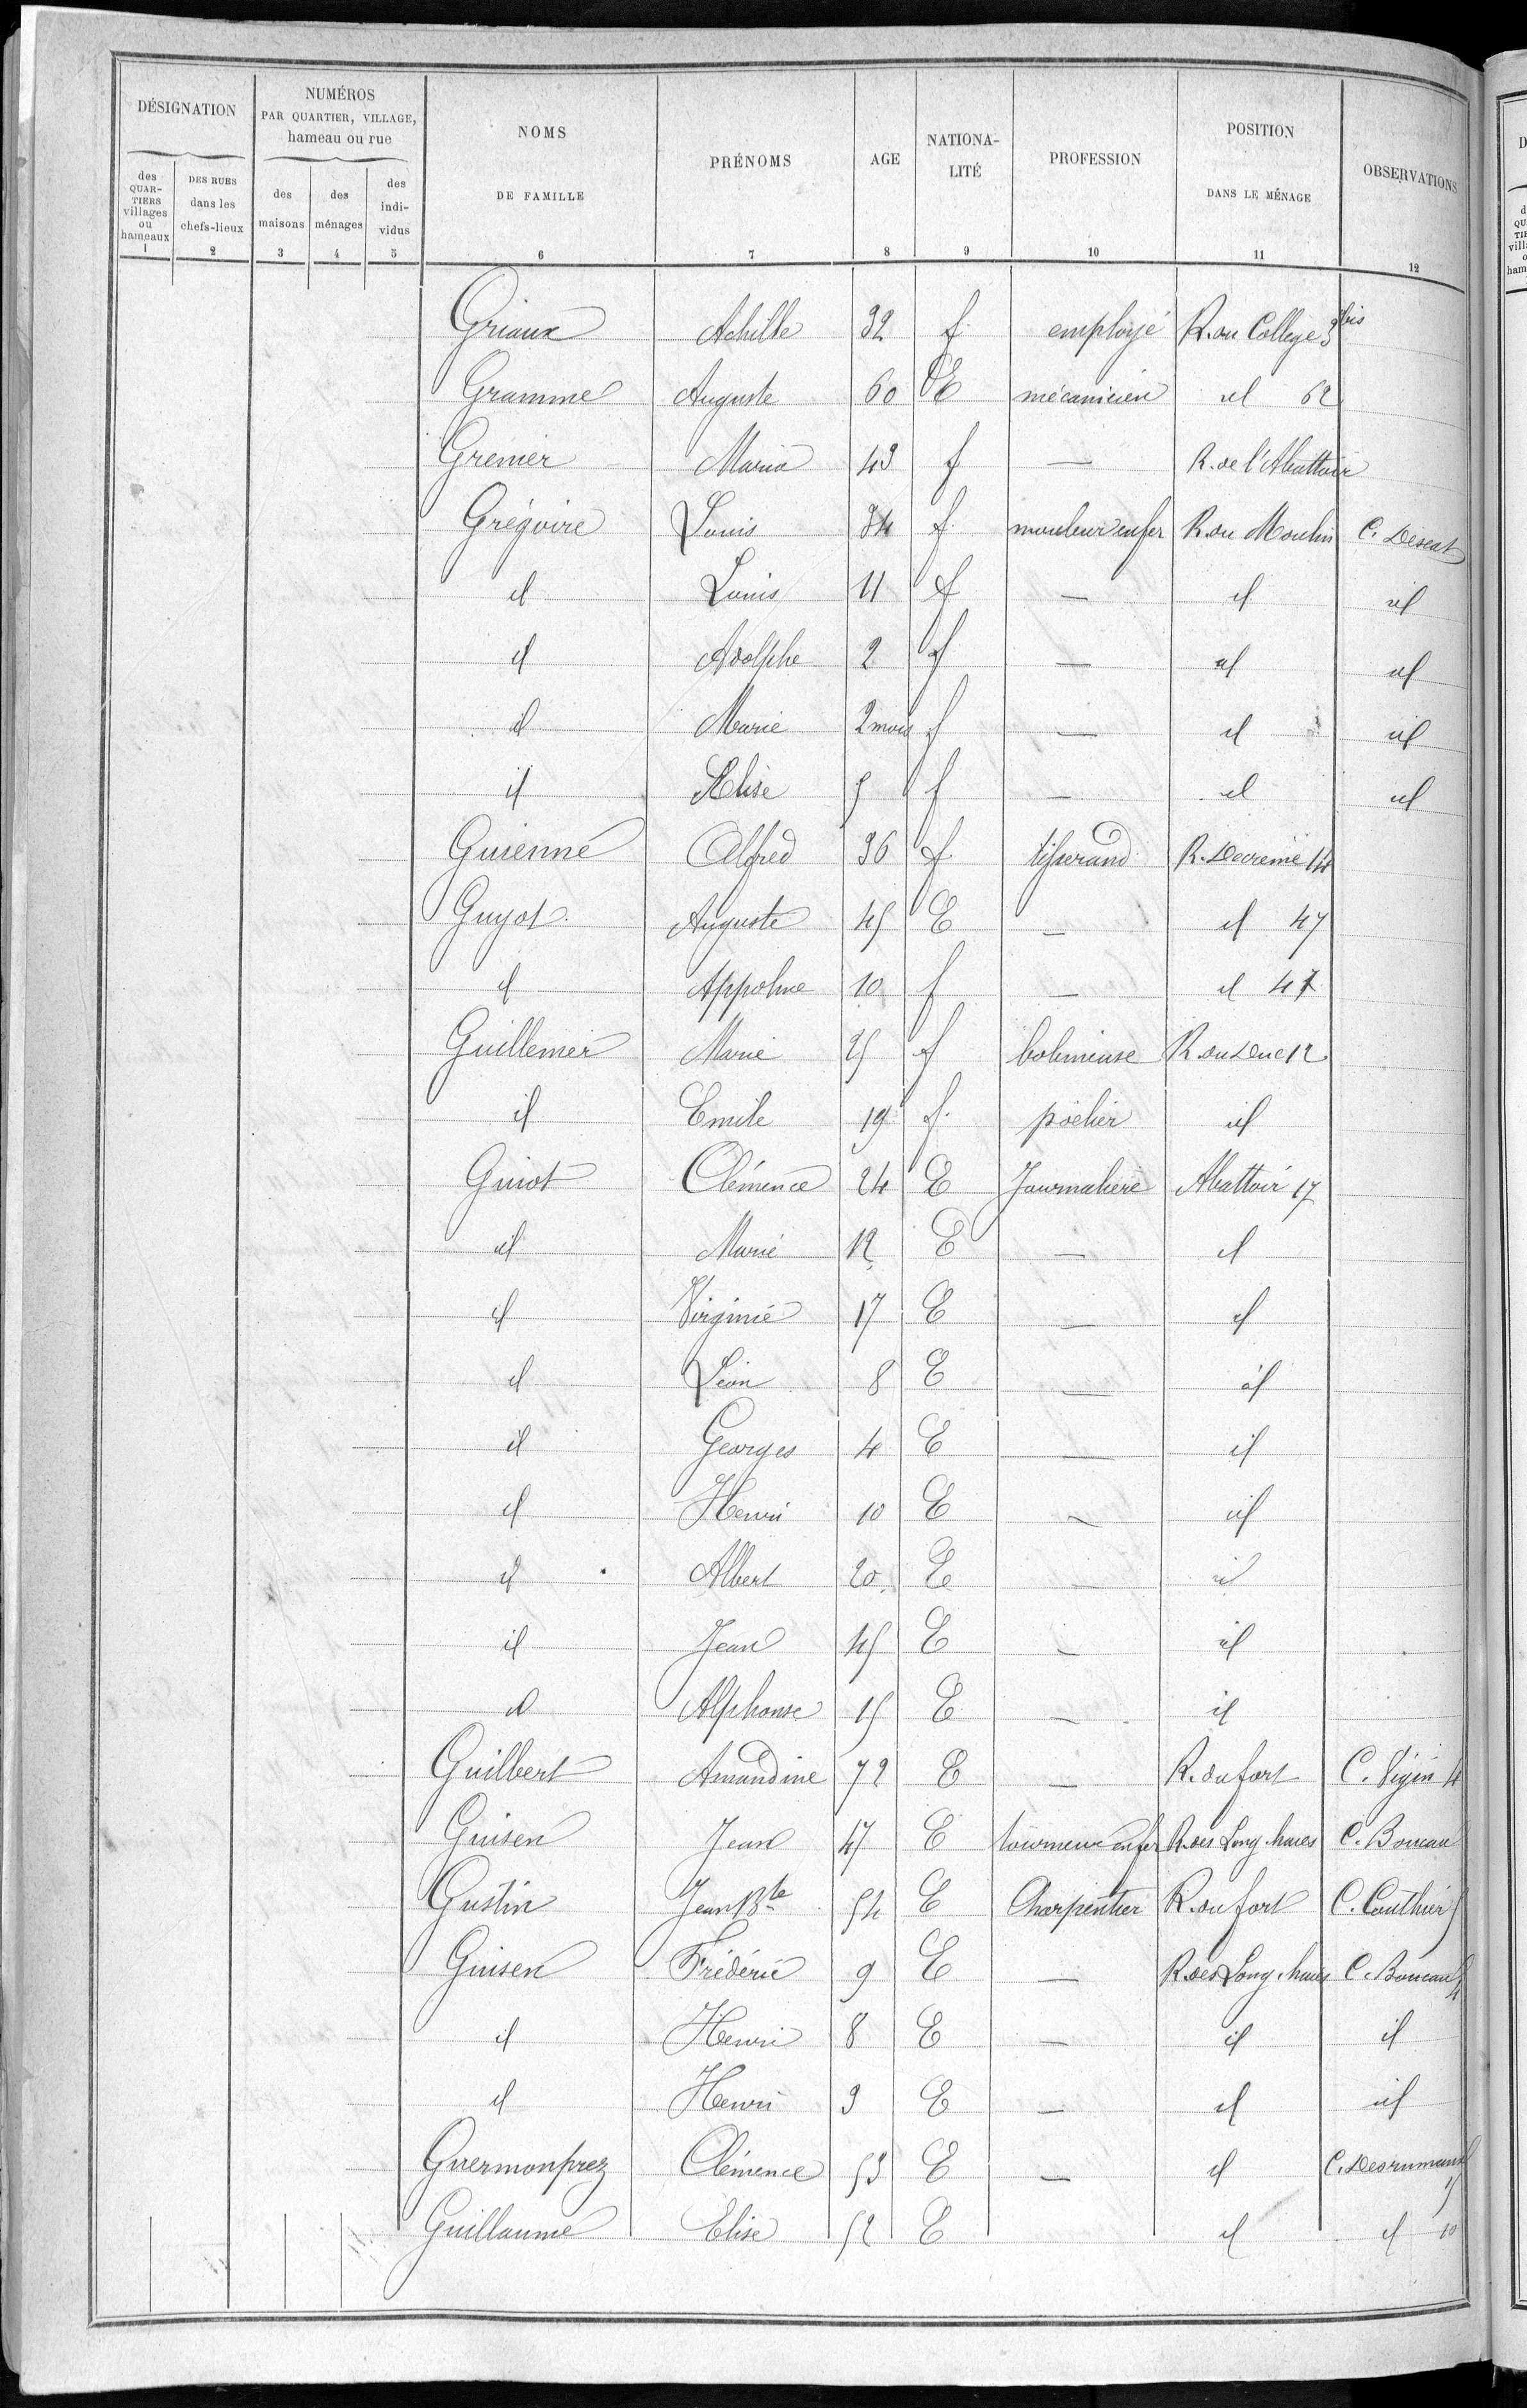 DÉSIGNATION
NUMÉROS
PAR QUARTIER, VILLAGE,
hameau ou rue
NOMS
DE FAMILLE
PRÉNOMS
AGE
NATIONA-
LITÉ
PROFESSION
POSITION
DANS LE MÉNAGE
OBSERVATIONS
des
QUAR-
TIERS
villages
ou
hameaux
DES RUES
dans les
chefs-lieux
des
maisons
des
ménages
des
indi-
vidus
1 2 3 4 5 6 7 8 9 10 11 12
Griaux Achille 32 f. employé R. du College 3 bis
Gramme Auguste 60 E mécanicien id 62
Grenier Maria 43 f — R. de l'Abattoir
Grégoire Louis 34 f mouleur en fer R. du Moulin C. Descat
id Louis 11 f — id id
id Adolphe 2 f — id id
id Marie 2 mois f — id id
id Elise 5 f — id id
Guienne Alfred 36 f tisserand R. Decreme 14
Guyot Auguste 45 E — id 47
id Appoline 10 f — id 47
Guillemier Marie 25 f bobineuse R. du Duc 12
id Emile 19 f. poëlier id
Guiot Clémence 24 E Journalière Abattoir 17
id Marie 12 E — id
id Virginie 17 E — id
id Léon 8 E — id
id Georges 4 E — id
id Henri 10 E — id
id Albert 20 E — id
id Jean 45 E — id
id Alphonse 15 E — id
Guilbert Amandine 72 E — R. du fort C. Vigin 4
Guisen Jean 47 E tourneur en fer R. des Long. haies C. Boucau
Gustin Jean Bte 54 E Charpentier R. du fort C. Couthier 5
Guisen Frédéric 9 E — R. des Long. haies C. Boucau 4
id Henri 8 E — id id
id Henri 3 E — id id
Guermonprez Clémence 53 E — id C. Desrumaux 15
Guillaume Elise 52 E id id 10